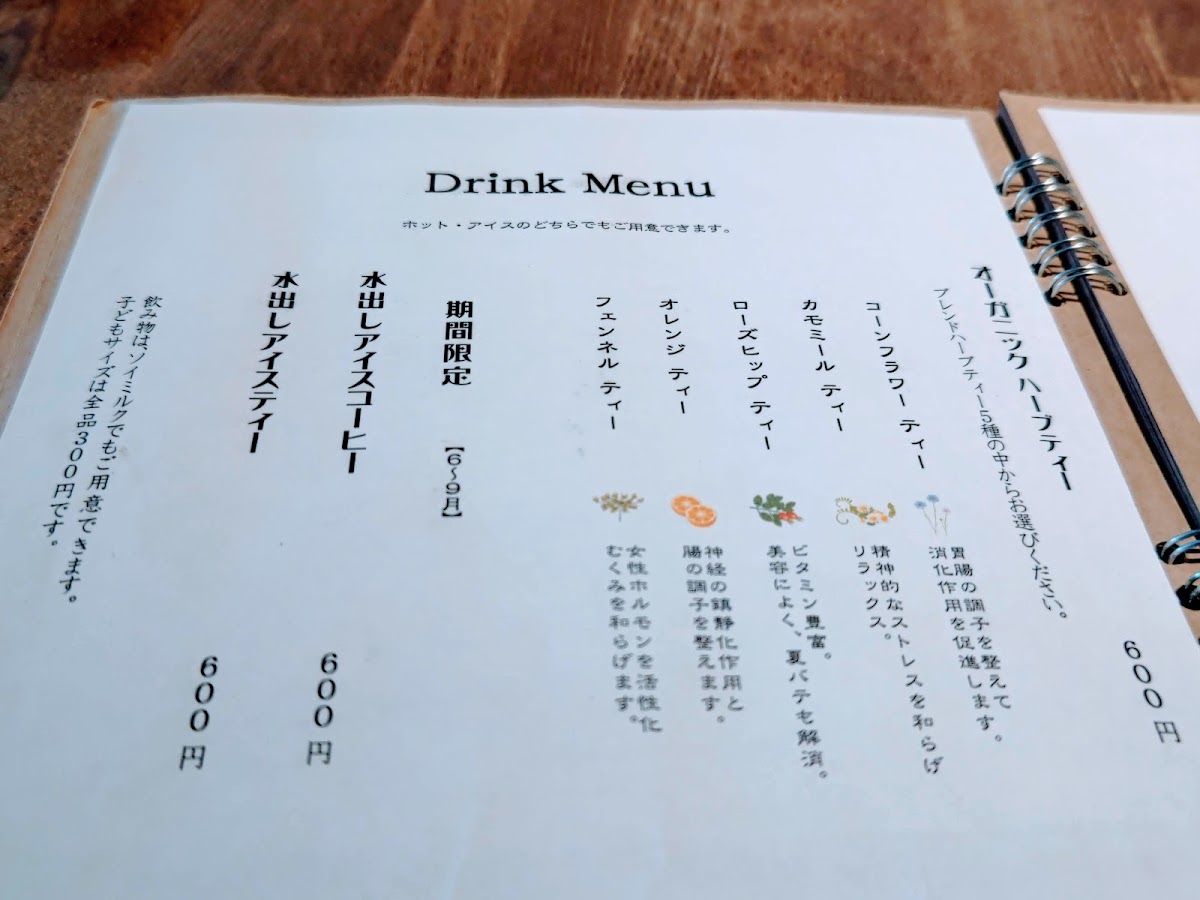 Drink Menu
ホット・アイスのどちらでもご用意できます。
オーガニック ハーブティー
600円
ブレンドハーブティー5種の中からお選びください。
コーンフラワー ティー
胃腸の調子を整えて
消化作用を促進します。
カモミール ティー
精神的なストレスを和らげ
リラックス。
ローズヒップ ティー
ビタミン豊富。
美容によく、夏バテも解消。
オレンジ ティー
神経の鎮静化作用と
腸の調子を整えます。
フェンネル ティー
女性ホルモンを活性化
むくみを和らげます。
期間限定 【6〜9月】
水出しアイスコーヒー 600円
水出しアイスティー 600円
飲み物は、ソイミルクでもご用意できます。
子どもサイズは全品300円です。